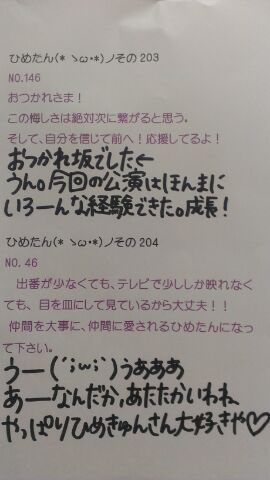 ひめたん(* ヽω･*)ノその203
NO.146
おつかれさま！
この悔しさは絶対次に繋がると思う。
そして、自分を信じて前へ！応援してるよ！
おつかれ坂でした←
うん。今回の公演はほんまに
いろーんな経験できた。成長！
ひめたん(* ヽω･*)ノその204
NO. 46
出番が少なくても、テレビで少ししか映れなく
ても、目を皿にして見ているから大丈夫！！
仲間を大事に、仲間に愛されるひめたんになっ
て下さい。
うー(´;ω;`)うあああ
あーなんだか、あたたかいわね
やっぱりひめきゅんさん大好きや♡